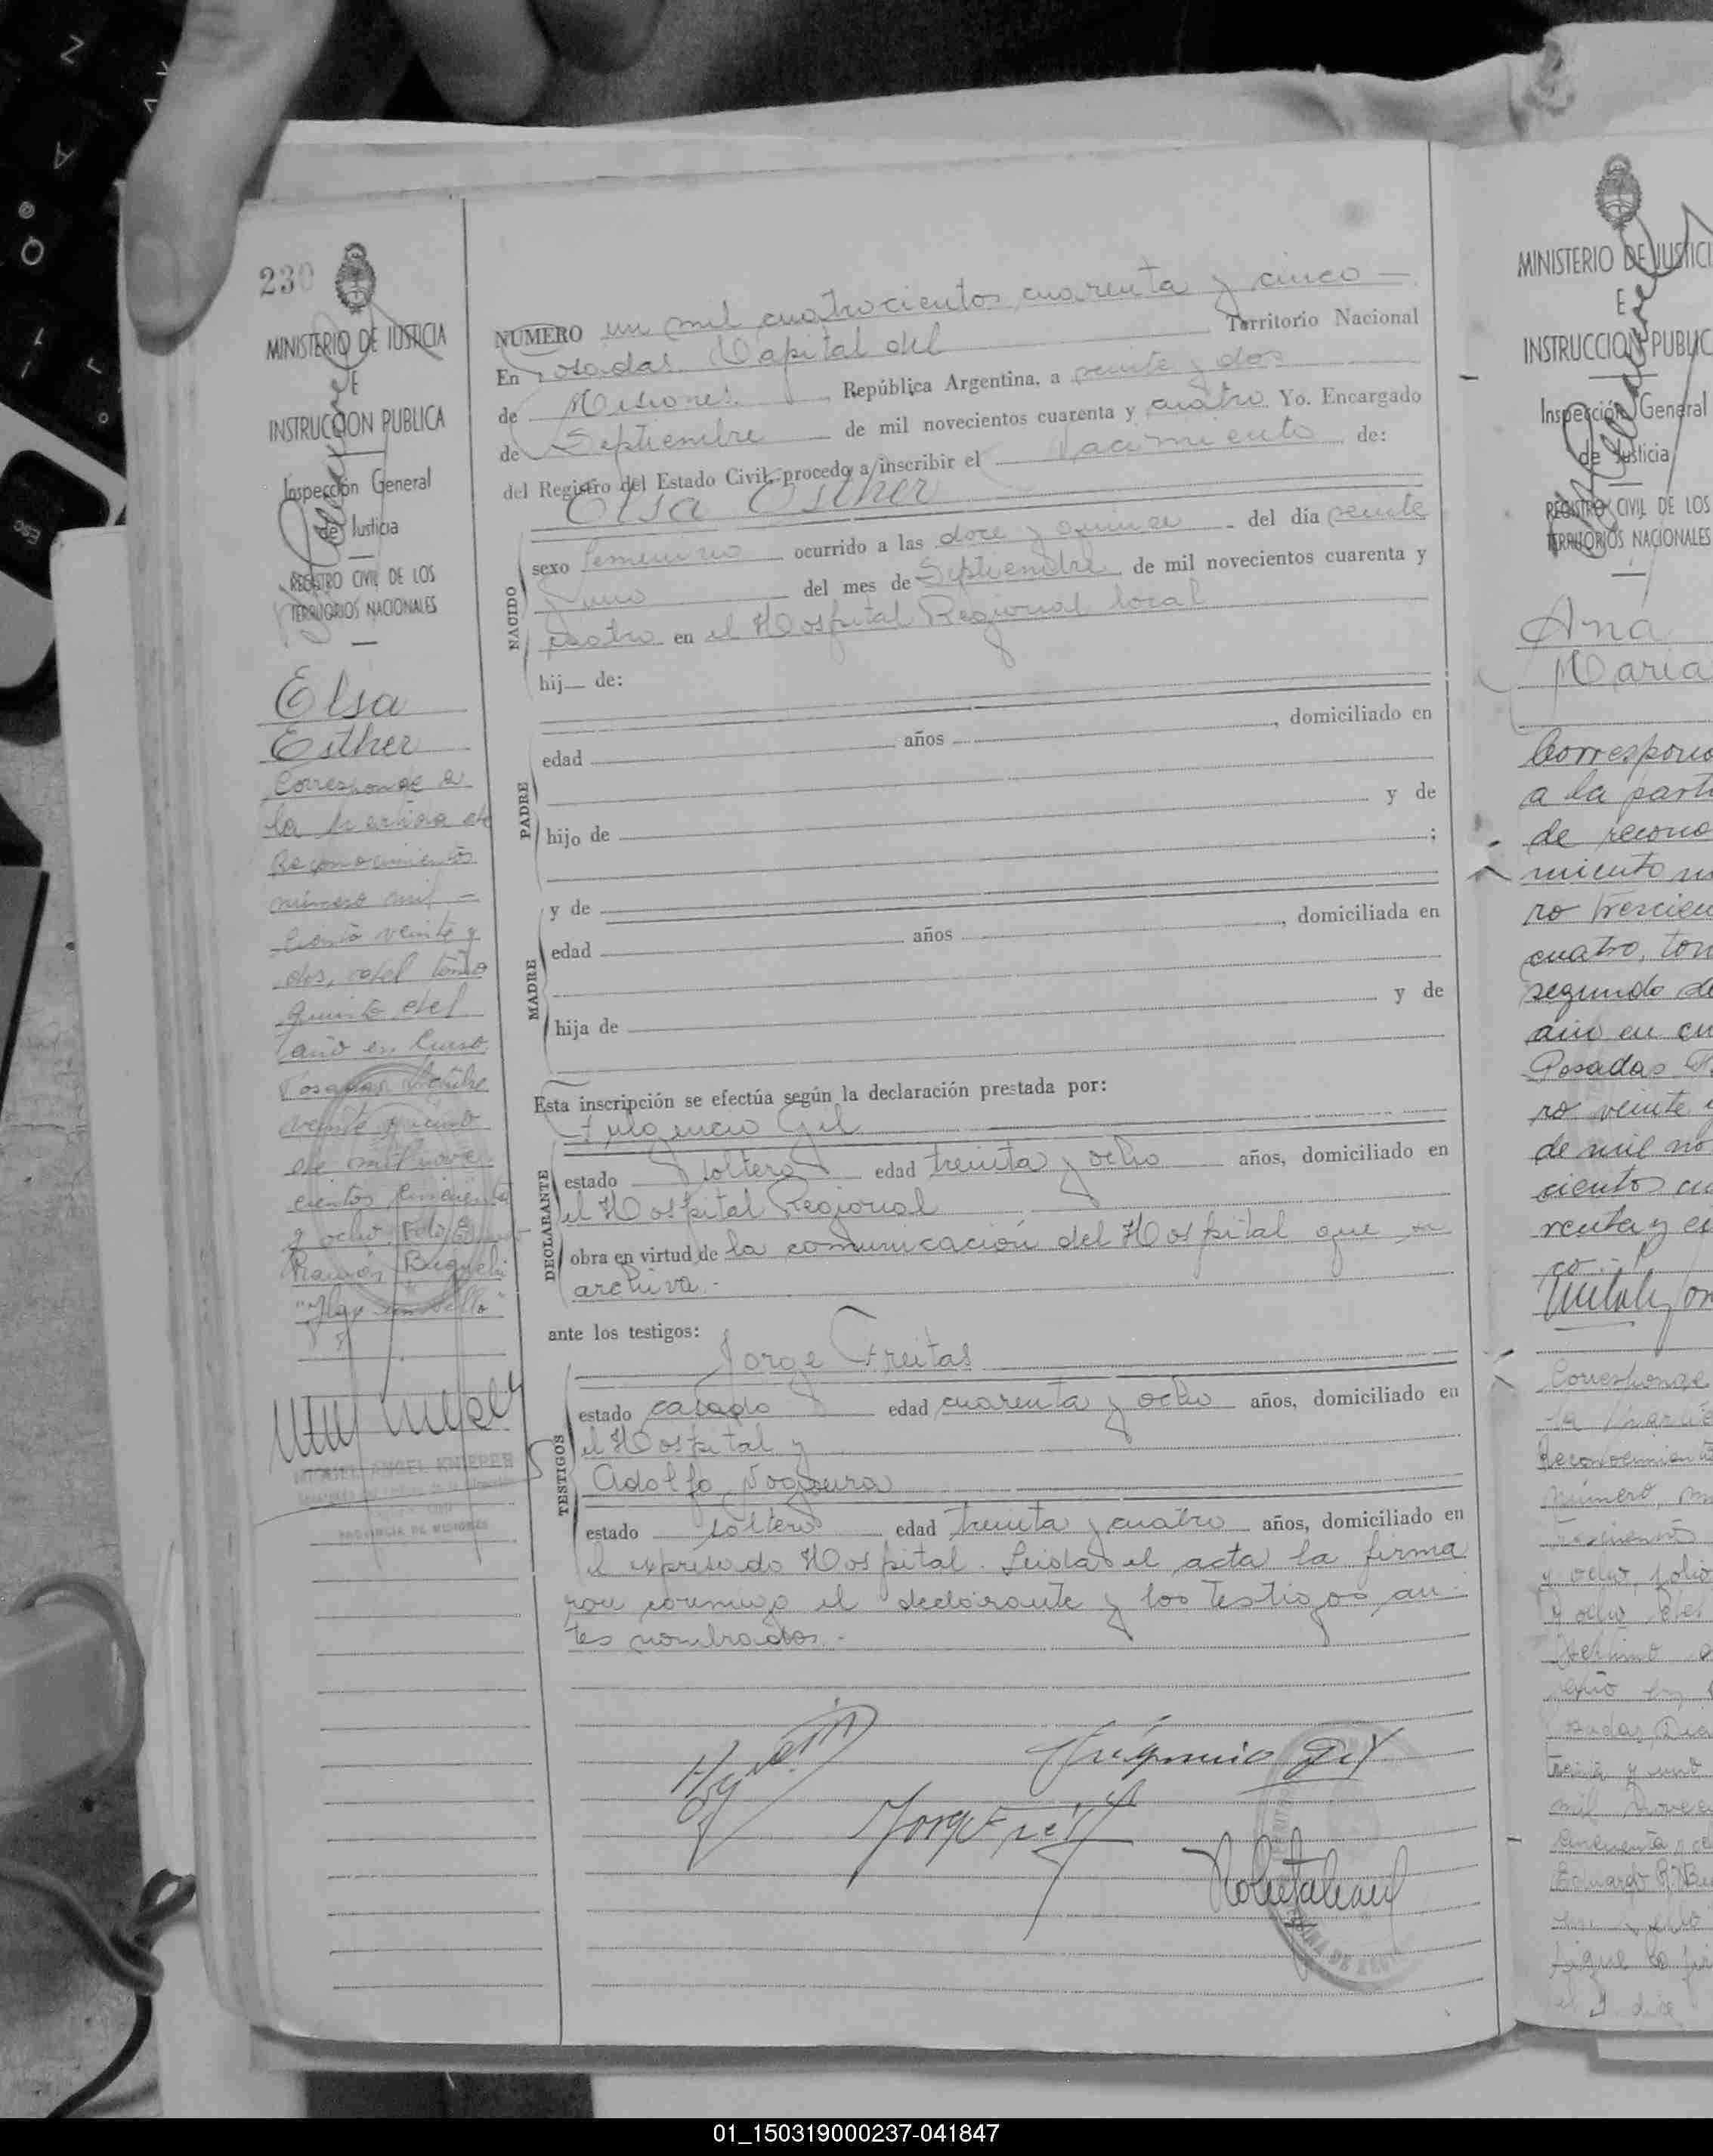 230
MINISTERIO DE JUSTICIA
E
INSTRUCCION PUBLICA
Inspección General
de Justicia
REGISTRO CIVIL DE LOS
TERRITORIOS NACIONALES
Elsa
Esther
Corresponde a
la partida de
Reconocimiento
número mil
ciento veinte y
dos, del tomo
quinto del
año en curso.
Posadas, Octubre
veinte y cinco
de mil nove
cientos cincuenta
y ocho. Fdo:
Ramón
"Hay un sello"
MIGUEL ANGEL KNIEPER
PROVINCIA DE MISIONES
NUMERO un mil cuatrocientos cuarenta y cinco —
En Posadas Capital del Territorio Nacional
de Misiones. República Argentina, a veinte y dos
de Septiembre de mil novecientos cuarenta y cuatro Yo. Encargado
del Registro del Estado Civil, procedo a inscribir el Nacimiento de:
Elsa Esther
NACIDO
sexo femenino ocurrido a las doce y quince del día veinte
y uno del mes de Septiembre de mil novecientos cuarenta y
cuatro en el Hospital Regional local
hij de:
PADRE
edad años , domiciliado en
y de
hijo de ;
MADRE
y de
edad años , domiciliada en
y de
hija de
Esta inscripción se efectúa según la declaración prestada por:
Fulgencio Gil
DECLARANTE
estado soltero edad treinta y ocho años, domiciliado en
el Hospital Regional
obra en virtud de la comunicación del Hospital que se
archiva.-
ante los testigos:
Jorge Freitas
TESTIGOS
estado casado edad cuarenta y ocho años, domiciliado en
el Hospital y
Adolfo Noguera
estado soltero edad treinta y cuatro años, domiciliado en
el expresado Hospital. Leida el acta la firma
ron conmigo el declarante y los testigos an-
tes nombrados.-
Fulgencio Gil
Jorge Freitas
MINISTERIO DE JUSTICI
E
INSTRUCCION PUBLIC
Inspección General
de Justicia
REGISTRO CIVIL DE LOS
TERRITORIOS NACIONALES
Ana
Maria
Correspon
a la parti
de recono
miento nu
ro trescien
cuatro, tom
segundo de
año en cu
Posadas
ro veinte y
de mil no
cientos cu
renta y ci
co.-
Corresponde
la
Reconocimiento
número, m
y ocho, folio
y ocho del
treinta y uno
mil novec
Eduardo R. Bu
01_150319000237-041847